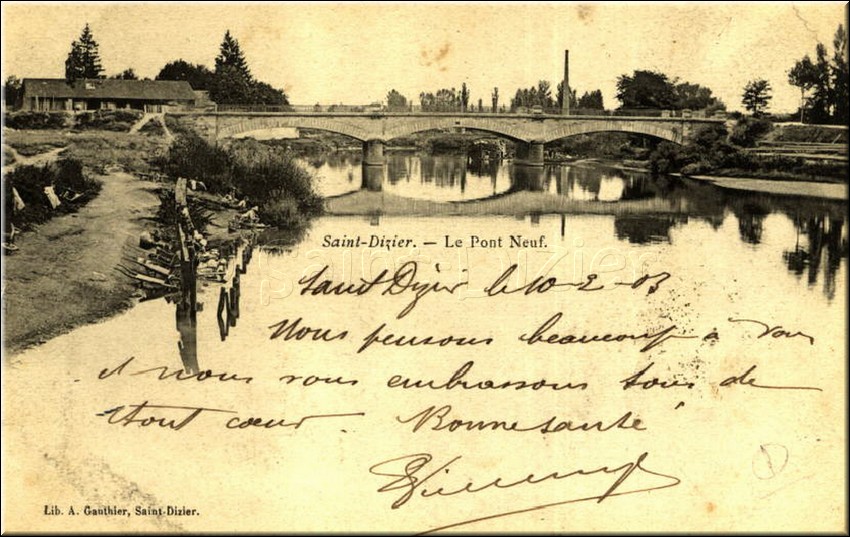 Saint-Dizier. — Le Pont Neuf.
Saint Dizier le 10-2-03
Nous pensons beaucoup à vous
et nous vous embrassons tous de
tout cœur. Bonne santé
Lib. A. Gauthier, Saint-Dizier.